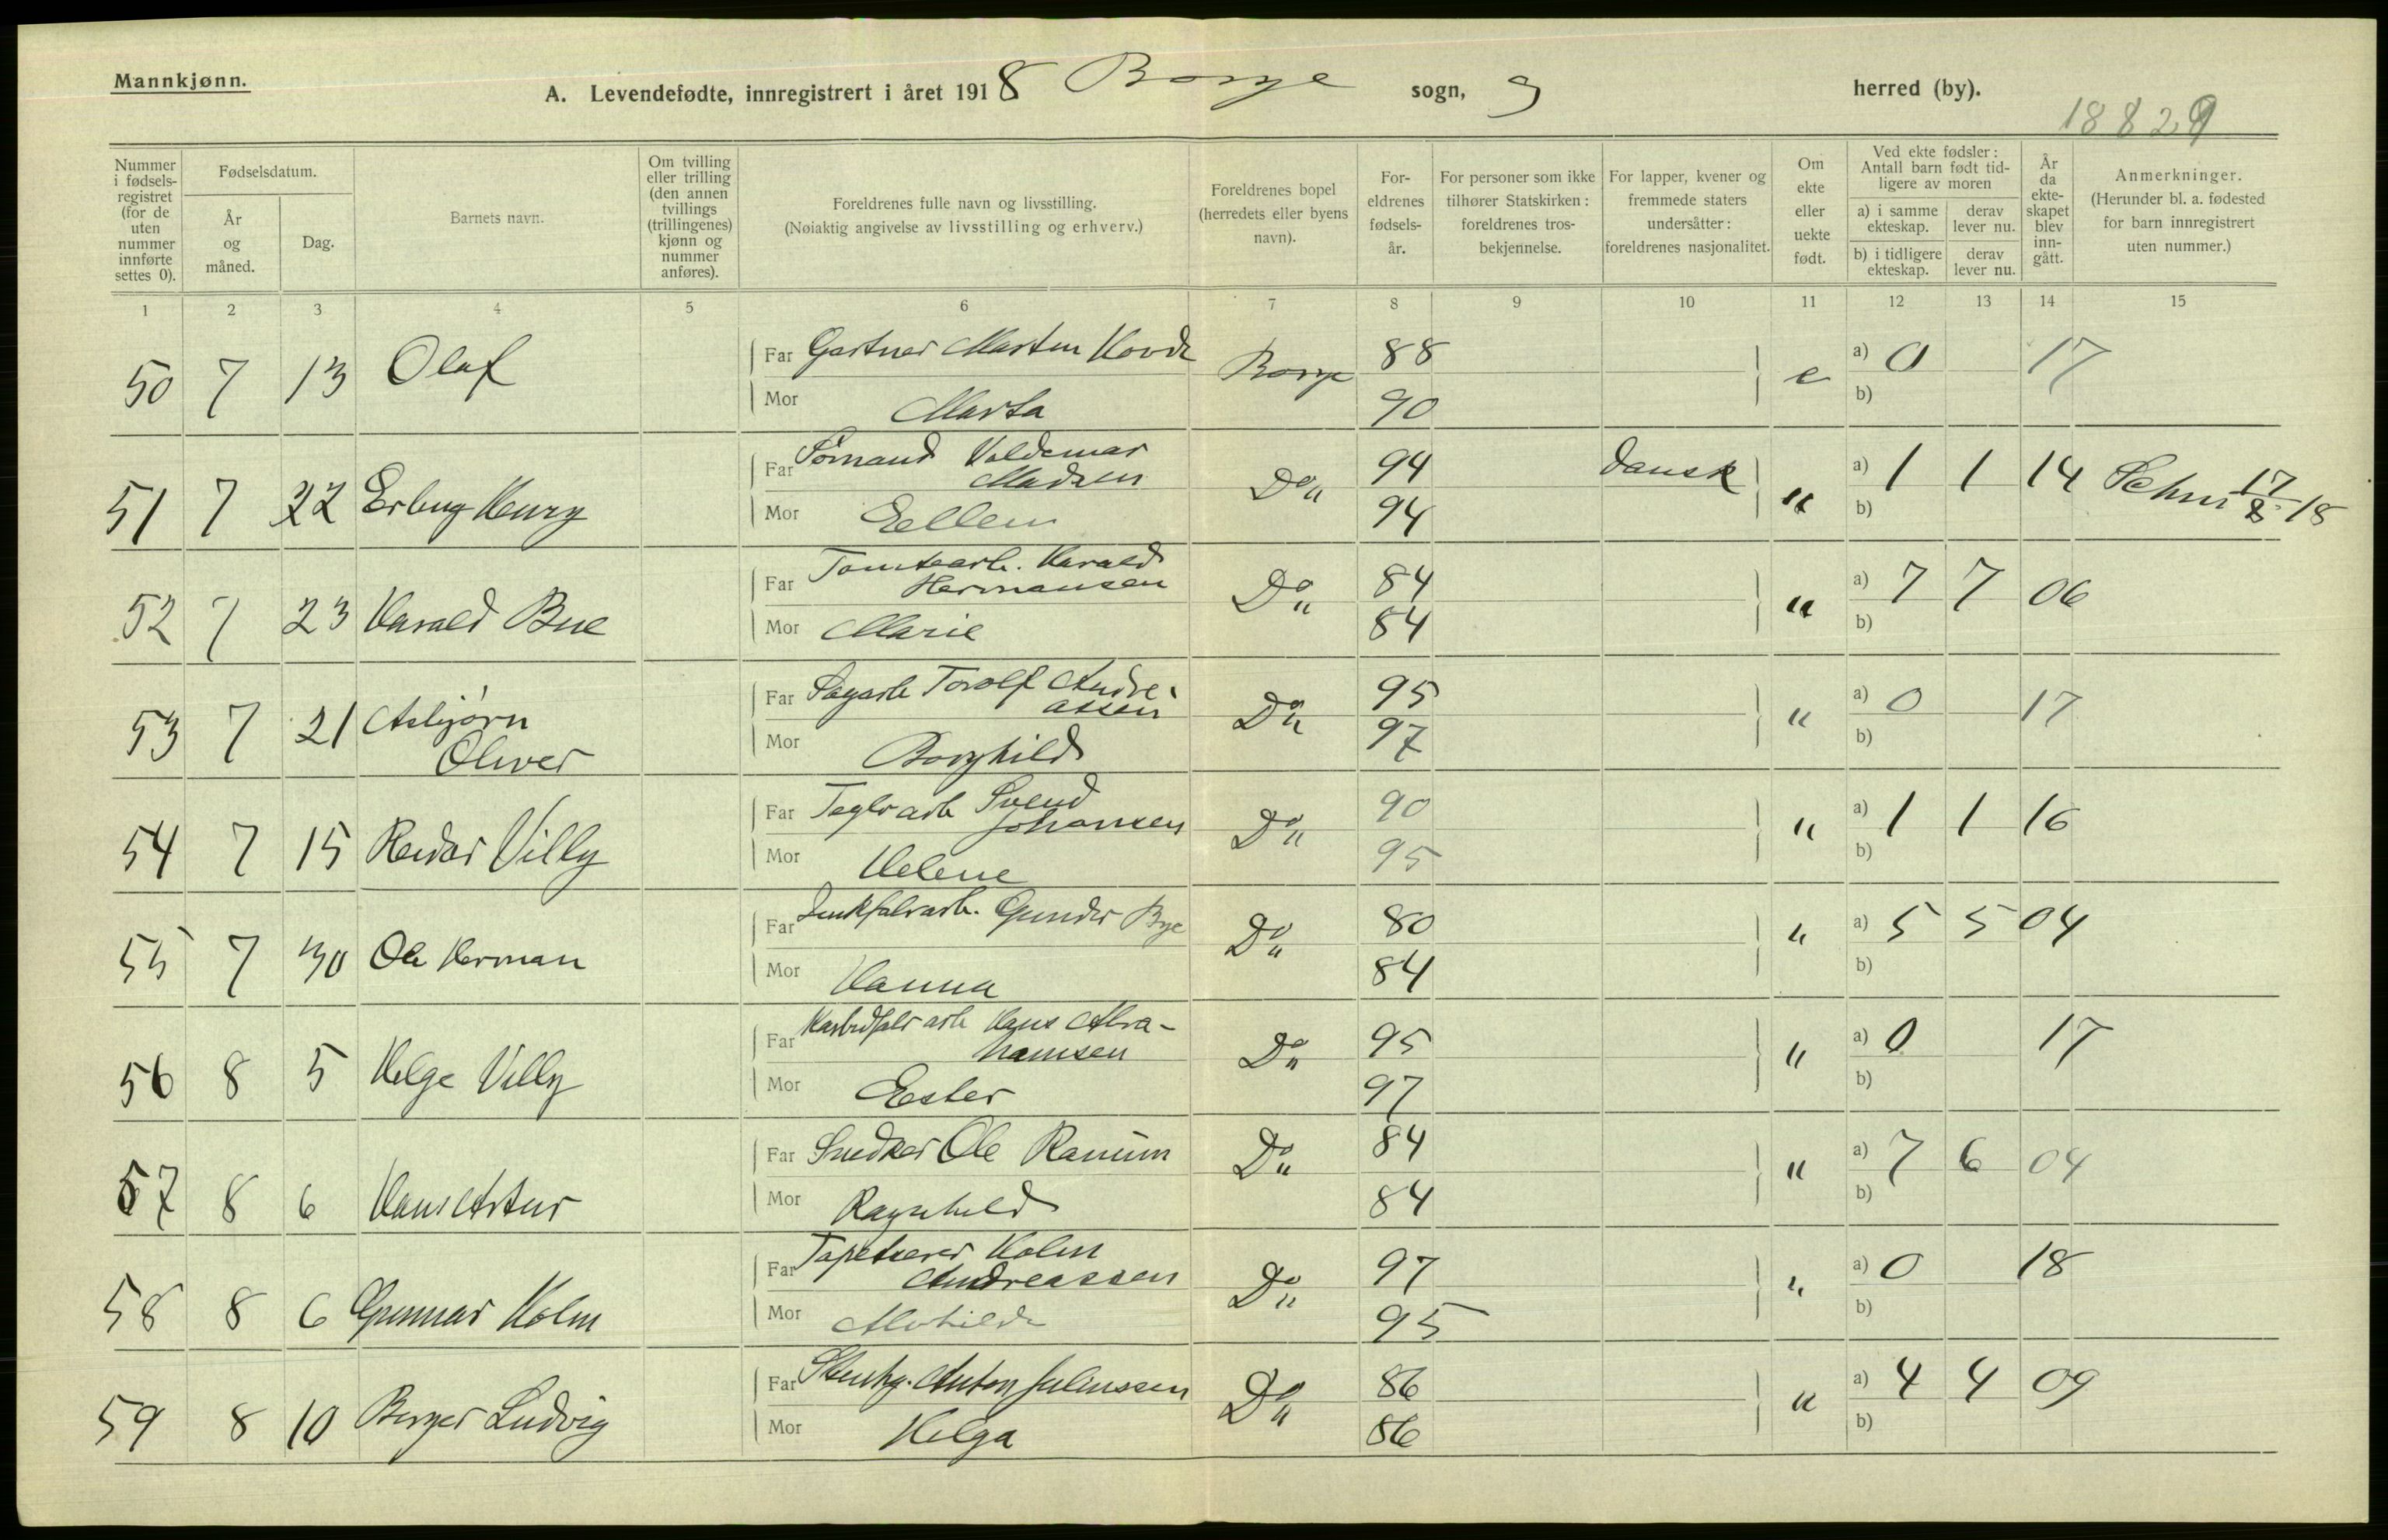 Mannkjønn.
A. Levendefødte, innregistrert i året 1918 Borge sogn, herred (by).
18829
Nummer i fødsels-registret (for de uten nummer innførte settes 0).
Fødselsdatum.
År og måned.
Dag.
Barnets navn.
Om tvilling eller trilling (den annen tvillings (trillingenes) kjønn og nummer anføres).
Foreldrenes fulle navn og livsstilling.
(Nøiaktig angivelse av livsstilling og erhverv.)
Foreldrenes bopel (herredets eller byens navn).
For-eldrenes fødsels-år.
For personer som ikke tilhører Statskirken: foreldrenes tros-bekjennelse.
For lapper, kvener og fremmede staters undersåtter: foreldrenes nasjonalitet.
Om ekte eller uekte født.
Ved ekte fødsler: Antall barn født tid-ligere av moren
a) i samme ekteskap.
derav lever nu.
b) i tidligere ekteskap.
derav lever nu.
År da ekte-skapet blev inn-gått.
Anmerkninger.
(Herunder bl. a. fødested for barn innregistrert uten nummer.)
1 2 3 4 5 6 7 8 9 10 11 12 13 14 15
50 7 13 Olaf Far Gartner Marten Hovde Borge 88 e a) 0 17
Mor Marta 90 b)
51 7 22 Erling Henry Far Sømand Valdemar Madsen Do 94 Dansk " a) 1 1 14 17/8 18
Mor Ellen 94 b)
52 7 23 Harald Bue Far Tomtearb. Harald Hermansen Do 84 " a) 7 7 06
Mor Marie 84 b)
53 7 21 Asbjørn Oliver Far Sagarb Torolf Andre-assen Do 95 " a) 0 17
Mor Borghild 97 b)
54 7 15 Reidar Villy Far Teglv arb Svend Johansen Do 90 " a) 1 1 16
Mor Helene 95 b)
55 7 30 Ole Herman Far Gunder Bye Do 80 " a) 5 5 04
Mor Hanna 84 b)
56 8 5 Helge Villy Far Karbidfabr arb Hans Abra-hamsen Do 95 " a) 0 17
Mor Ester 97 b)
57 8 6 Hans Artur Far Snedker Ole Ramum Do 84 " a) 7 6 04
Mor Ragnhild 84 b)
58 8 6 Gunnar Holm Far Tapetserer Holm Andreassen Do 97 " a) 0 18
Mor 95 b)
59 8 10 Birger Ludvig Far Stenhg. Anton Juliussen Do 86 " a) 4 4 09
Mor Helga 86 b)